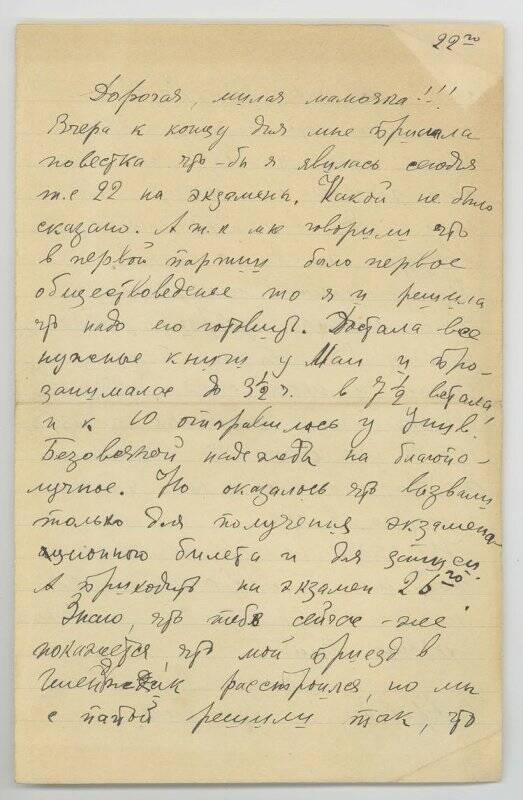 22го
Дорогая, милая мамочка!!!
Вчера к концу дня мне прислала
повестка что-бы я явилась сегодня
т.е 22 на экзамены. Какой не было
сказано. А т.к мне говорили что
в первой партии было первое
обществоведение то я и решила
что надо его готовить. Достала все
нужные книги у Маи и про-
занималась до 3½ ч. в 7½ встала
и к 10 отправилась у Унив!
Без всякой надежды на благопо-
лучное. Но оказалось что вызвали
только для получения экзамена-
ционного билета и для записи.
А приходить на экзамен 26го
Знаю, что тебе сейчас-же
покажется что мой приезд в
Геленджик расстроился, но мы
с папой решили так, что